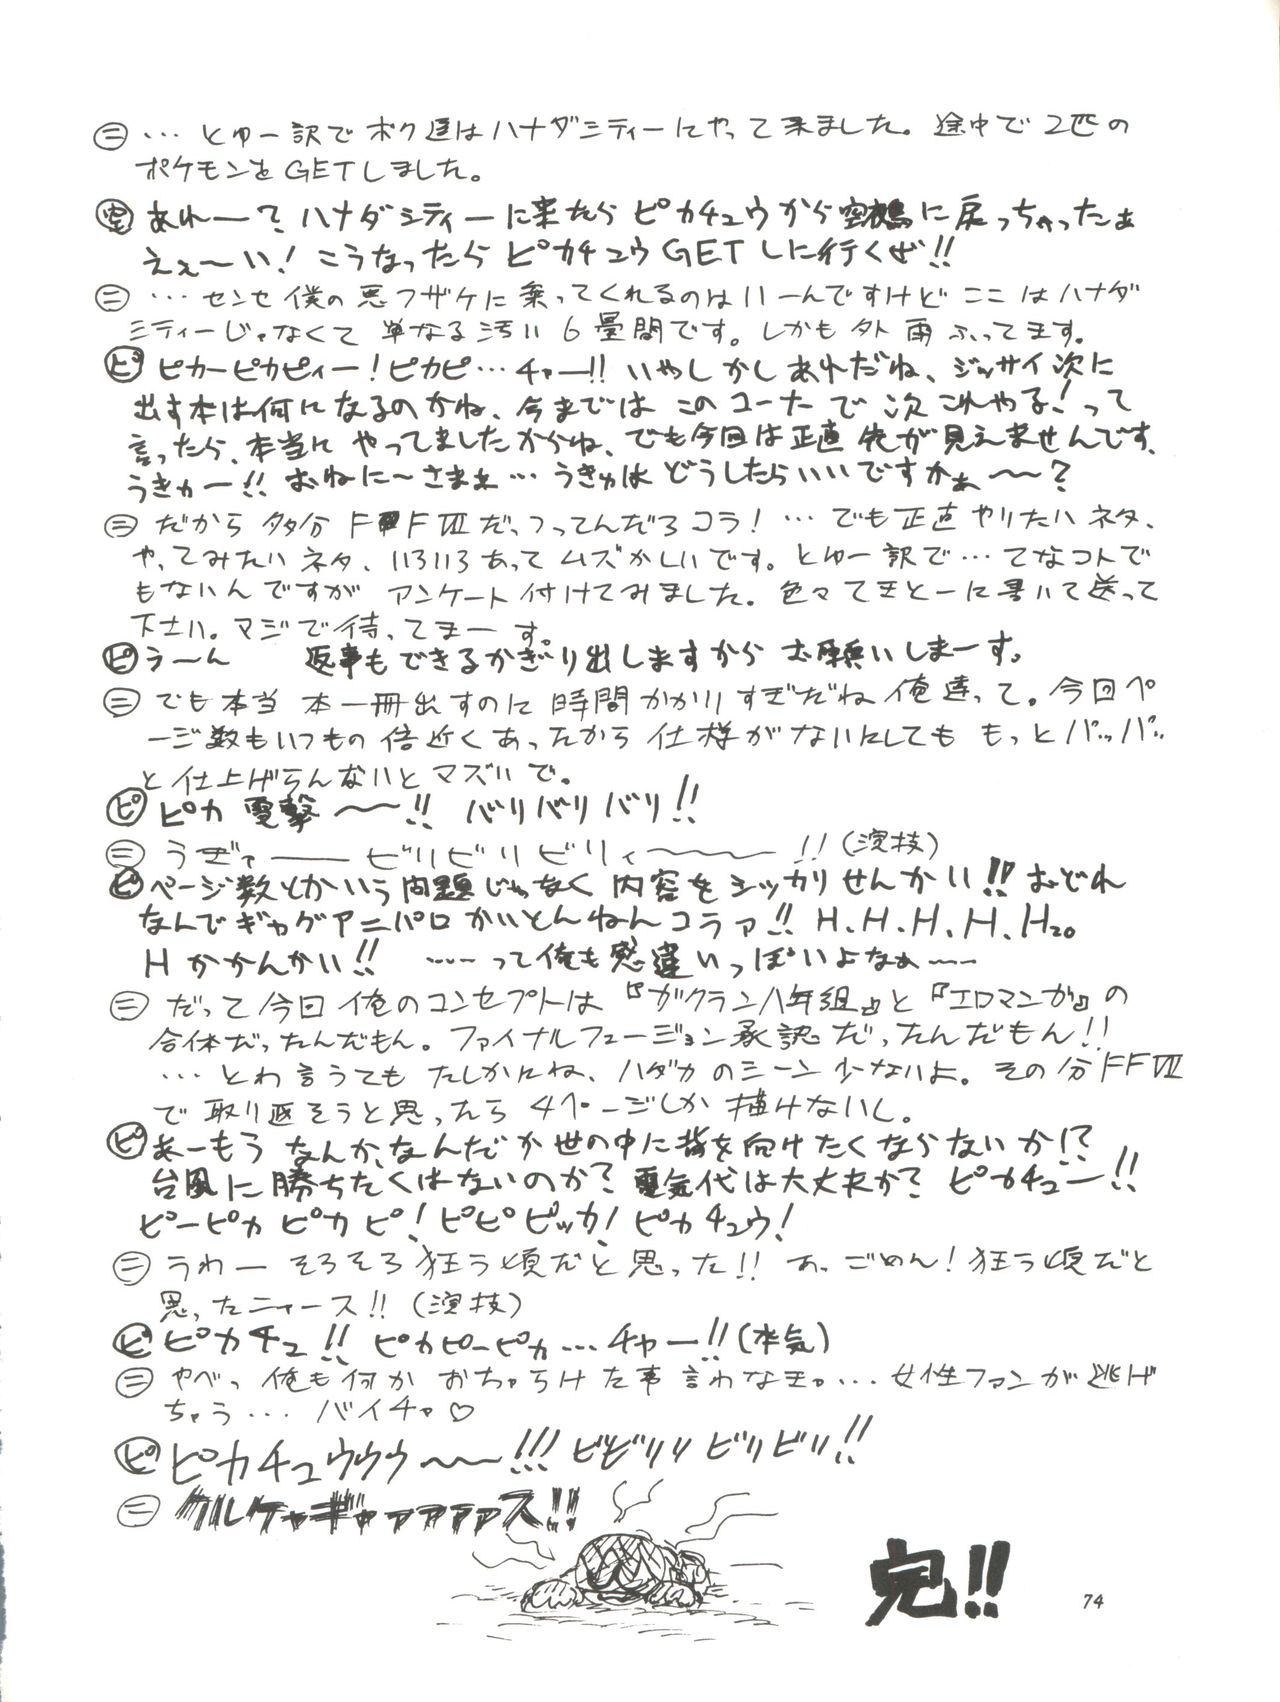 ㊁ … とゆー訳でボク達はハナダシティーにやって来ました。途中で2匹の
ポケモンをGETしました。
あれ――? ハナダシティーに来たらピカチュウから空鶴に戻っちゃったぁ
えぇ～い! こうなったらピカチュウGETしに行くぜ!!
㊁ … センセ僕の悪フザケに乗ってくれるのはいーんですけど ここはハナダ
シティーじゃなくて 単なる汚い6畳間です。しかも外雨ふってます。
ピ ピカーピカピィー! ピカピ… チャー!! いやしかしあれだね、ジッサイ次に
出す本は何になるのかね、今までは このコーナーで 次これやる! って
言ったら、本当に やってましたからね、でも今回は正直 先が見えませんです、
うきゅー!! おねに～さまぁ… うきゅは どうしたらいいですかぁ～～?
㊁ だから 多分 FFⅦだっつってんだろコラ! … でも正直やりたいネタ、
やってみたいネタ、いろいろあって ムズかしいです。とゆー訳で… てなコトで
もないんですが アンケート付けてみました。色々てきとーに書いて送って
下さい。マジで待ってまーす。
ピ う～～ん 返事もできるかぎり出しますから お願いしまーす。
㊁ でも本当 本一冊出すのに 時間かかりすぎだね俺達って。今回ペ
ージ数もいつもの倍近くあったから 仕様がないにしても もっとパッパッ
と仕上げらんないとマズいで。
ピ ピカ 電撃 ～～!! バリバリバリ!!
㊁ うぎゃ――― ビリビリビリィ～～～～ !! (演技)
ピ ページ数とかいう問題じゃなく 内容をシッカリせんかい!! おどれ
なんでギャグアニパロかいとんねんコラァ!! H.H.H.H.H₂₀
Hかかんかい!! …… って俺も感違いっぽいよなぁ……
㊁ だって今回 俺のコンセプトは『ガクラン八年組』と『エロマンガ』の
合体だったんだもん。ファイナルフュージョン承認だったんだもん!!
… とわ言うても たしかにね、ハダカのシーン少ないよ。その分FFⅦ
で取り返そうと思ったら 4ページしか描けないし。
ピ あーもう なんか、なんだか世の中に背を向けたくならないか!?
台風に勝ちたくはないのか? 電気代は大丈夫か? ピカチュー!!
ピーピカ ピカピ! ピピピッカ! ピカチュウ!
㊁ うわー そろそろ狂う頃だと思った!! あっごめん! 狂う頃だと
思ったニャース!! (演技)
ピ ピカチュ!! ピカピーピカ… チャー!! (本気)
㊁ やべっ 俺も何か おちゃらけた事言わなきゃ… 女性ファンが逃げ
ちゃう… バイチャ♡
ピ ピカチュウウウ～～!!! ビビリリ ビリビリ!!
㊁ クルケャギャァァァァス!!
完!!
74